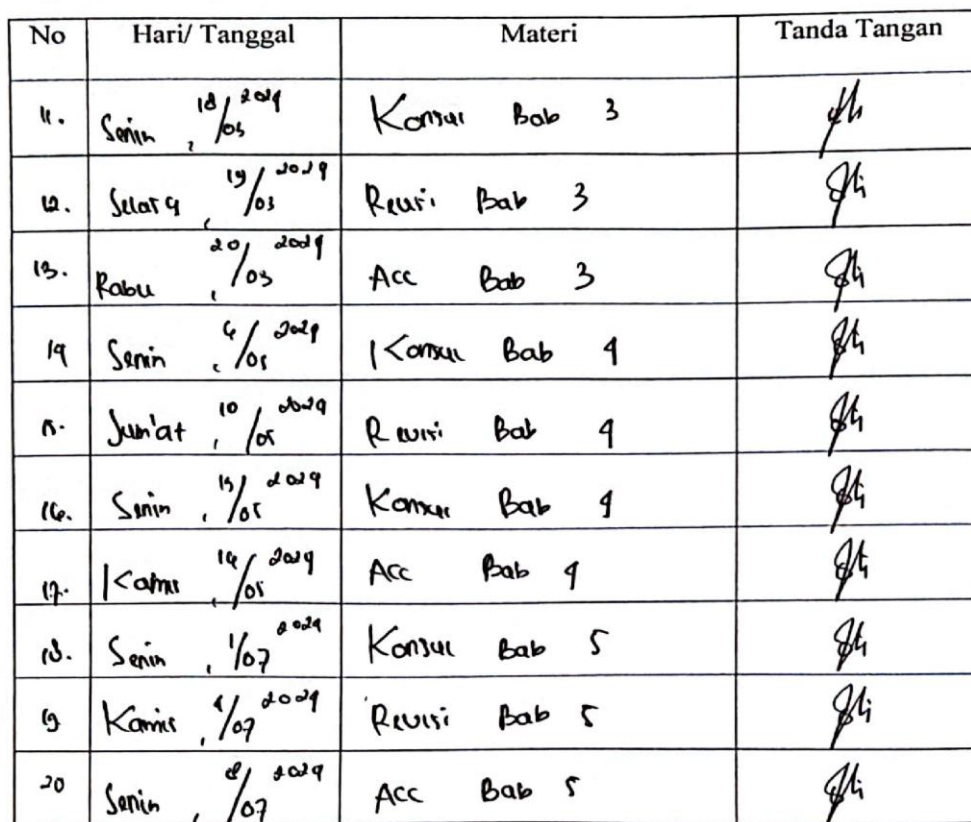 No Hari/ Tanggal Materi Tanda Tangan
11. Senin, 18/03 2024 Konsul Bab 3
12. Selasa, 19/03 2024 Revisi Bab 3
13. Rabu, 20/03 2024 Acc Bab 3
14 Senin, 6/05 2024 Konsul Bab 4
15. Jum'at, 10/05 2024 Revisi Bab 4
16. Senin, 13/05 2024 Konsul Bab 4
17. Kamis, 16/05 2024 Acc Bab 4
18. Senin, 1/07 2024 Konsul Bab 5
19 Kamis, 4/07 2024 Revisi Bab 5
20 Senin, 8/07 2024 Acc Bab 5